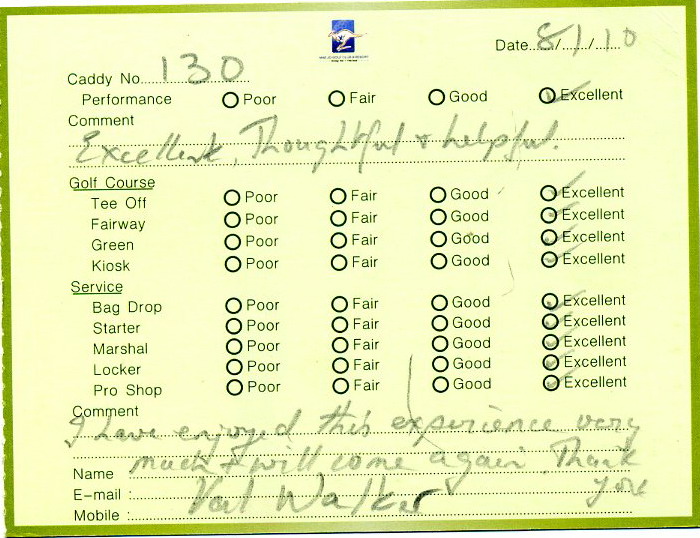 Date 8/ /10
Caddy No. 130
Performance Poor Fair Good Excellent
Comment
Excellent, Thoughtful + helpful.
Golf Course
Tee Off Poor Fair Good Excellent
Fairway Poor Fair Good Excellent
Green Poor Fair Good Excellent
Kiosk Poor Fair Good Excellent
Service
Bag Drop Poor Fair Good Excellent
Starter Poor Fair Good Excellent
Marshal Poor Fair Good Excellent
Locker Poor Fair Good Excellent
Pro Shop Poor Fair Good Excellent
Comment
I have enjoyed this experience very
much + will come again. Thank
you
Name
E-mail : Val Walker
Mobile :